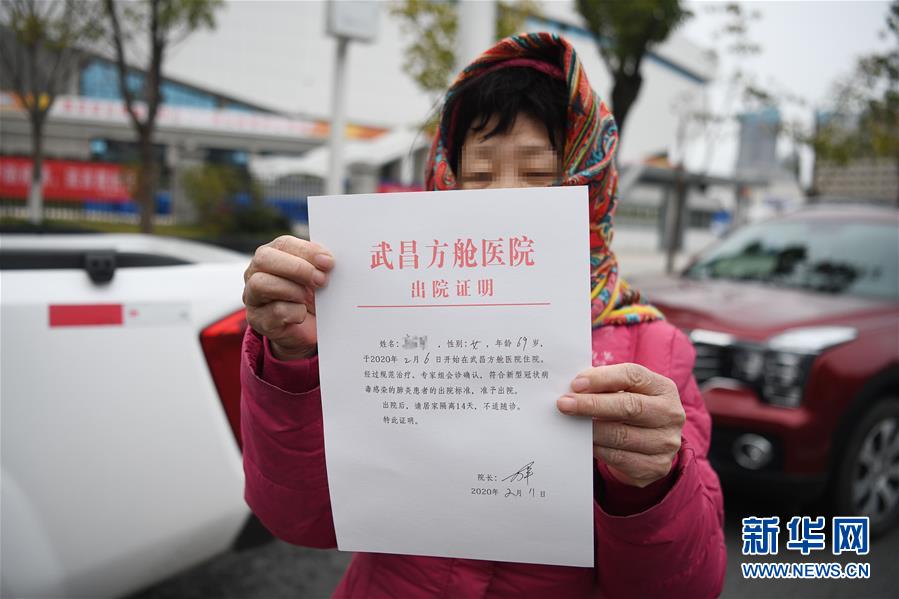 武昌方舱医院
出院证明
姓名: , 性别: 女, 年龄 69 岁,
于2020年 2 月 6 日开始在武昌方舱医院住院。
经过规范治疗、专家组会诊确认, 符合新型冠状病
毒感染的肺炎患者的出院标准, 准予出院。
出院后, 请居家隔离14天, 不适随诊。
特此证明。
院长:
2020年 2 月 11 日
新华网
WWW.NEWS.CN